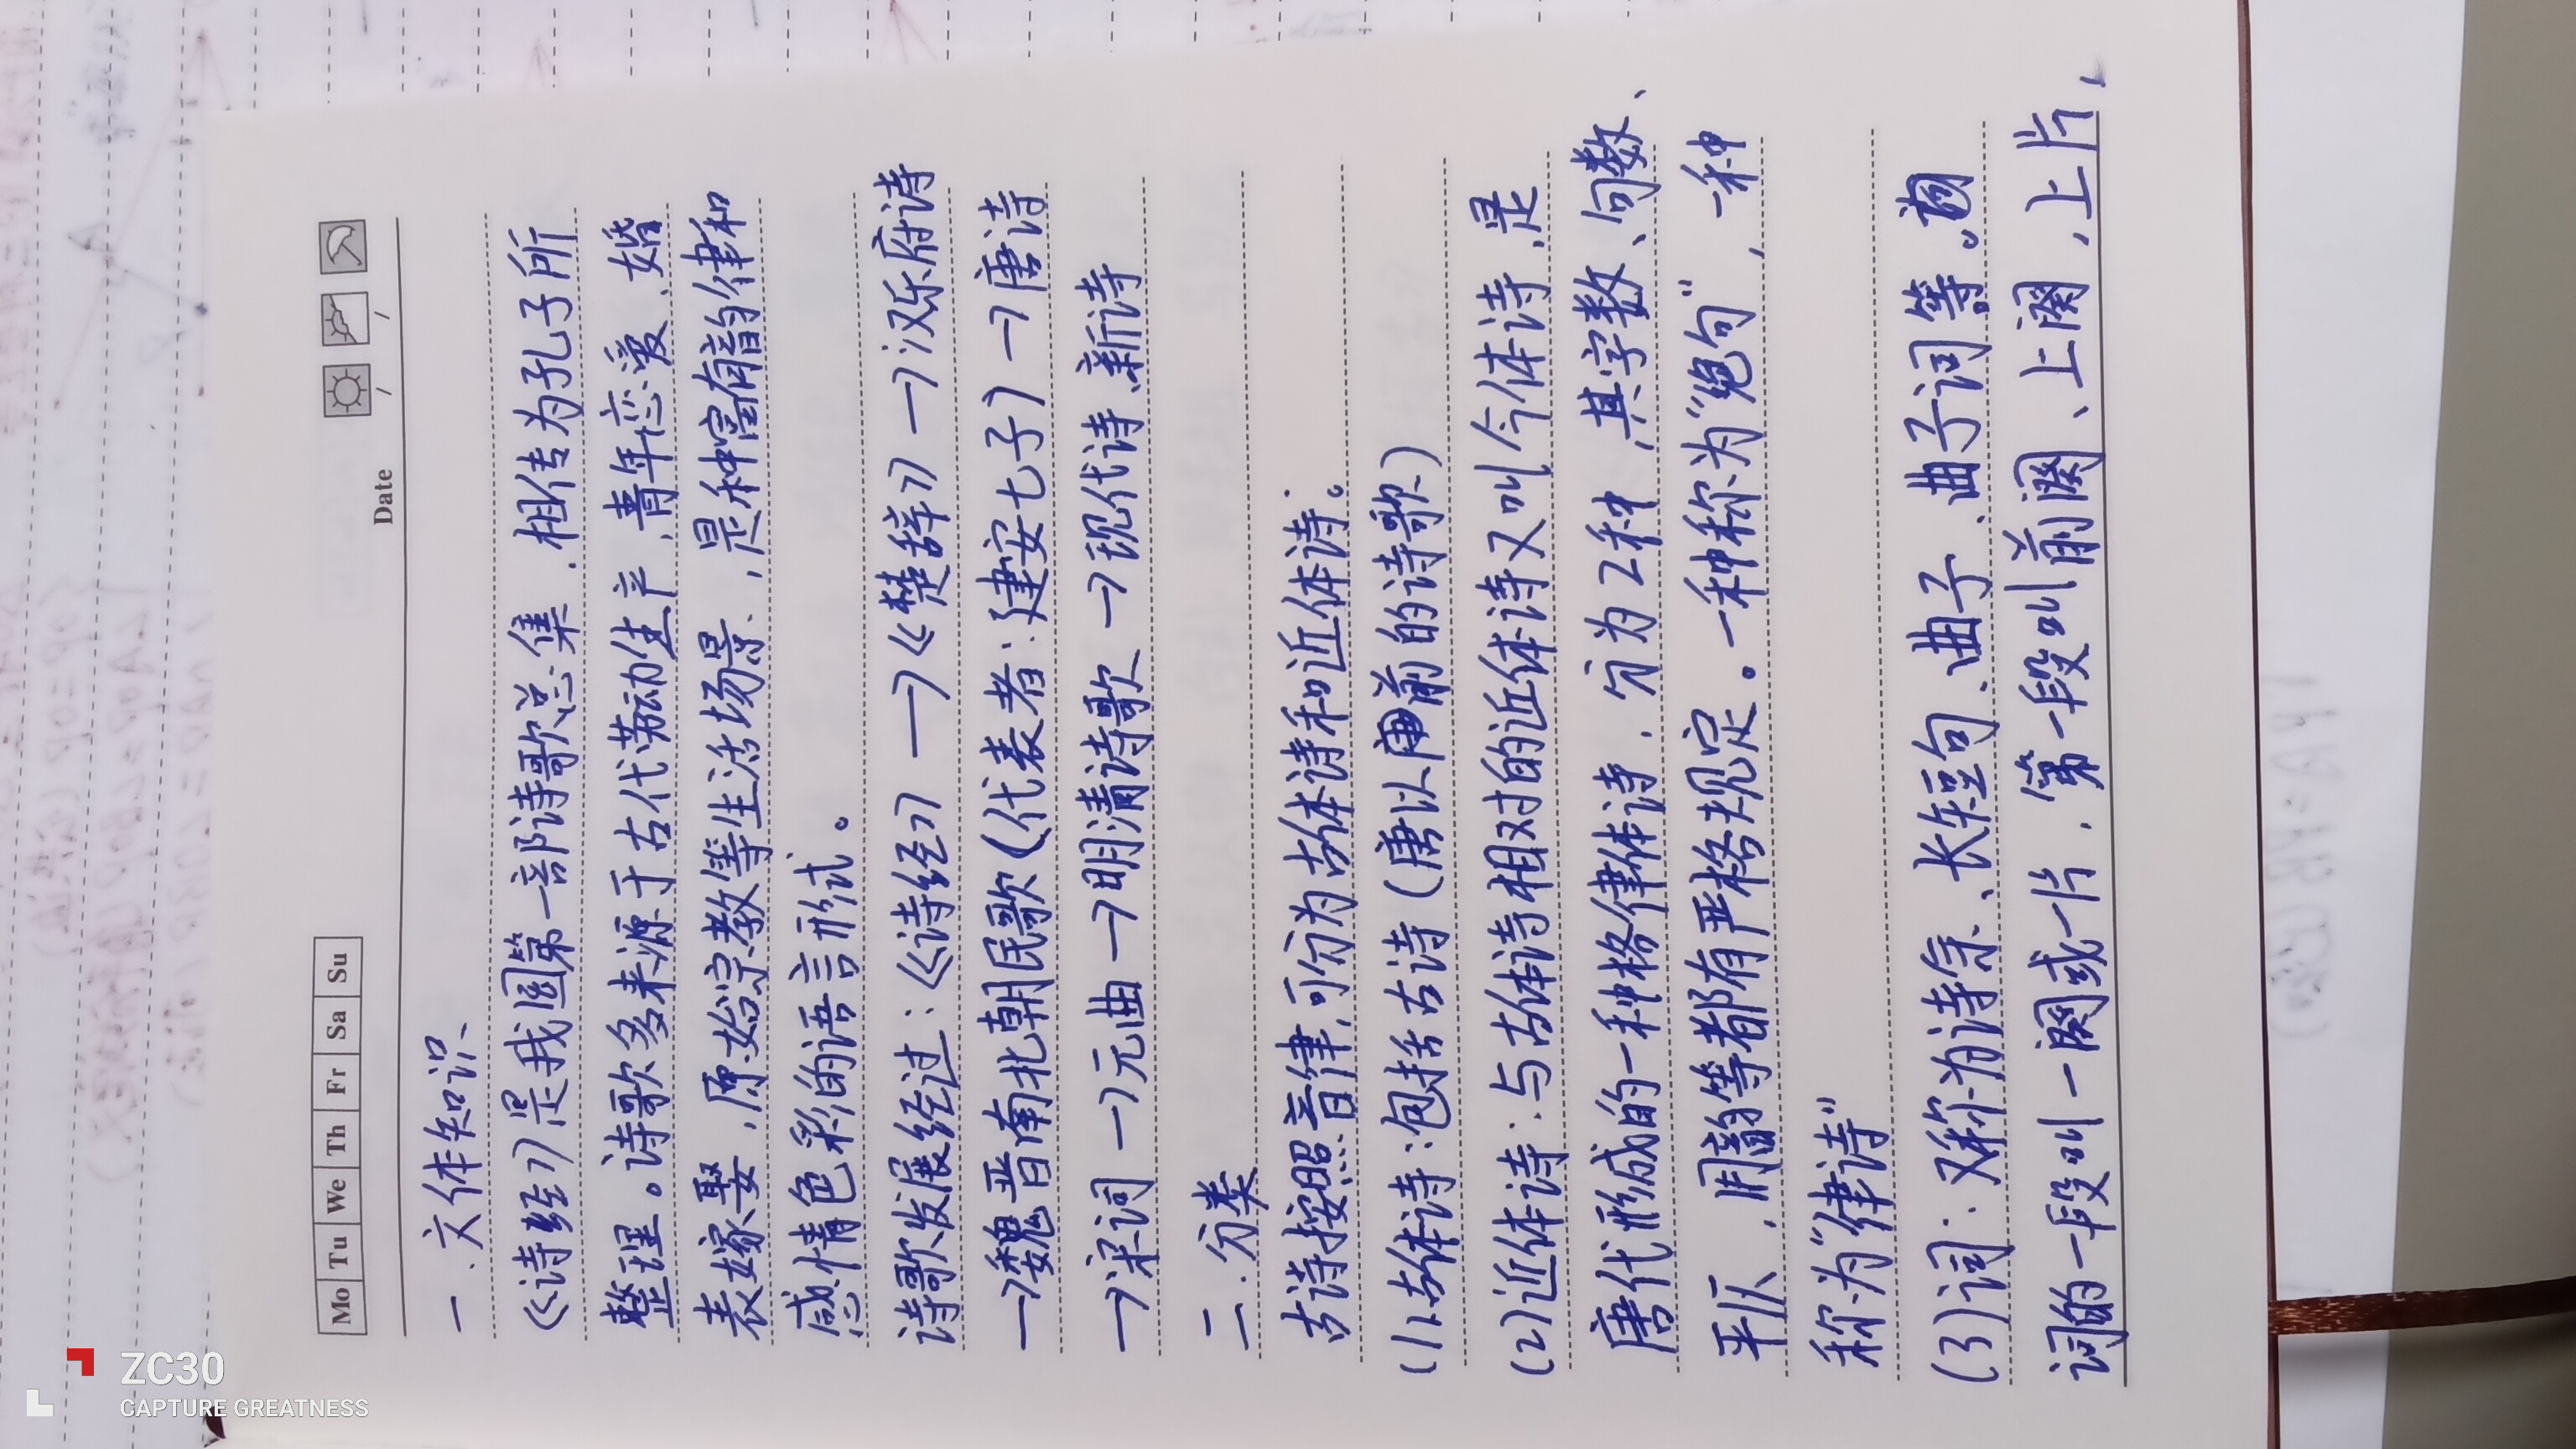 Mo Tu We Th Fr Sa Su
Date / /
一.文体知识、
《诗经》是我国第一部诗歌总集.相传为孔子所
整理。诗歌多来源于古代劳动生产、青年恋爱、婚
表嫁娶,原始宗教等生活场景,是种富有韵律和
感情色彩的语言形式。
诗歌发展经过:《诗经》→《楚辞》→汉乐府诗
→魏晋南北朝民歌(代表者:建安七子)→唐诗
→宋词→元曲→明清诗歌→现代诗、新诗
二.分类
古诗按照音律,可分为古体诗和近体诗。
(1)古体诗:包括古诗(唐以前的诗歌)
(2)近体诗:与古体诗相对的近体诗又叫今体诗,是
唐代形成的一种格律体诗,分为2种,其字数、句数、
平仄,用韵等都有严格规定。一种称为"绝句",一种
称为"律诗"
(3)词:又称为诗余、长短句、曲子、曲子词等。
词的一段叫一阕或一片,第一段叫前阕、上阕,上片,
ZC30
CAPTURE GREATNESS